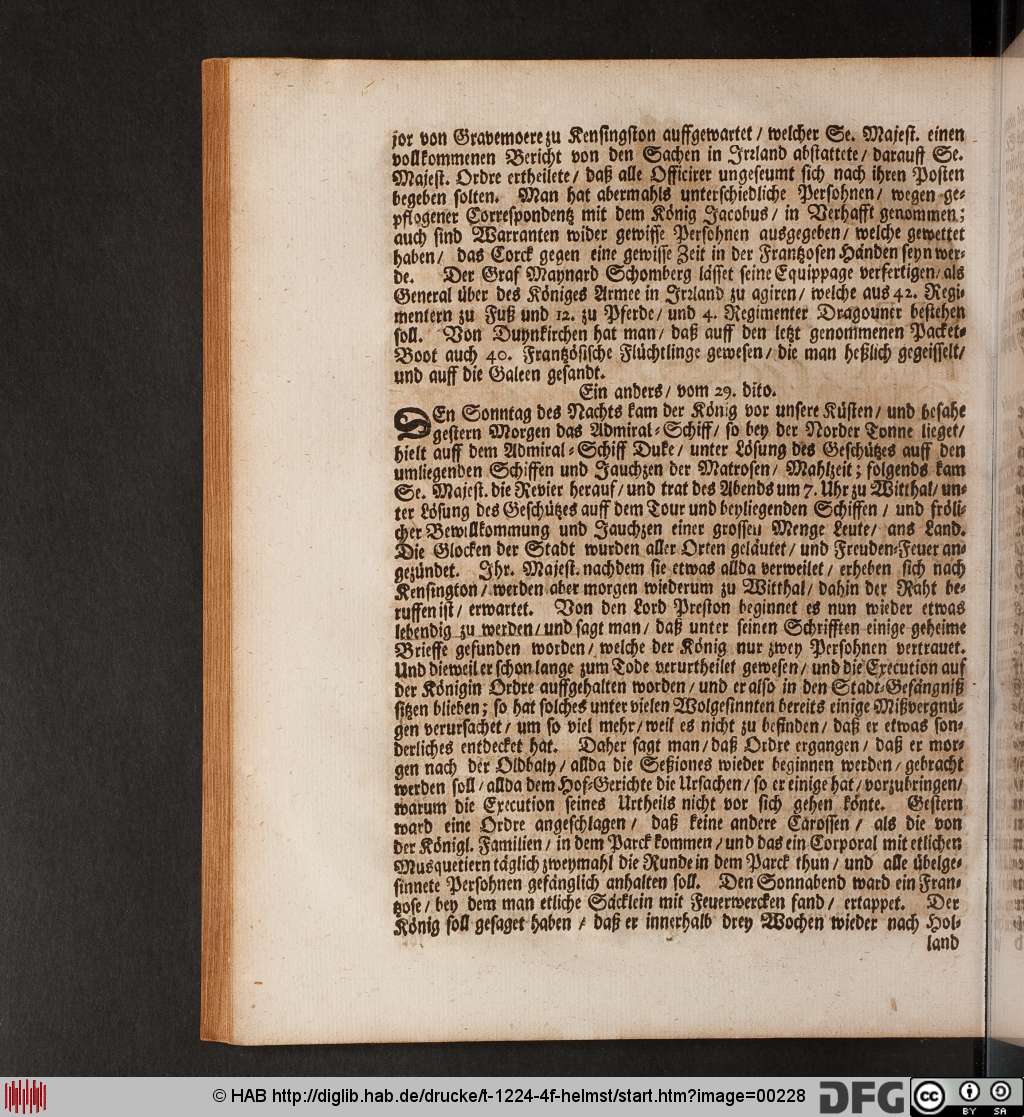 jor von Gravemoere zu Kensingston auffgewartet / welcher Se. Majest. einen
vollkommenen Bericht von den Sachen in Jrrland abstattete / darauff Se.
Majest. Ordre ertheilete / daß alle Officirer ungeseumt sich nach ihren Posten
begeben solten. Man hat abermahls unterschiedliche Persohnen / wegen ge-
pflogener Correspondentz mit dem König Jacobus / in Verhafft genommen;
auch sind Warranten wider gewisse Persohnen ausgegeben / welche gewettet
haben / das Corck gegen eine gewisse Zeit in der Frantzosen Händen seyn wer-
de. Der Graf Maynard Schomberg lässet seine Equippage verfertigen / als
General über des Königes Armee in Jrrland zu agiren / welche aus 42. Regi-
mentern zu Fuß und 12. zu Pferde / und 4. Regimenter Dragouner bestehen
soll. Von Duynkirchen hat man / daß auff den letzt genommenen Packet-
Boot auch 40. Frantzösische Flüchtlinge gewesen / die man heßlich gegeisselt /
und auff die Galeen gesandt.
Ein anders / vom 29. dito.
DEn Sonntag des Nachts kam der König vor unsere Küsten / und besahe
gestern Morgen das Admiral-Schiff / so bey der Norder Tonne lieget /
hielt auff dem Admiral-Schiff Duke / unter Lösung des Geschützes auff den
umliegenden Schiffen und Jauchzen der Matrosen / Mahlzeit; folgends kam
Se. Majest. die Revier herauf / und trat des Abends um 7. Uhr zu Witthal / un-
ter Lösung des Geschützes auff dem Tour und beyliegenden Schiffen / und fröli-
cher Bewillkommung und Jauchzen einer grossen Menge Leute / ans Land.
Die Glocken der Stadt wurden aller Orten geläutet / und Freuden-Feuer an-
gezündet. Jhr. Majest. nachdem sie etwas allda verweilet / erheben sich nach
Kensington / werden aber morgen wiederum zu Witthal / dahin der Raht be-
ruffen ist / erwartet. Von den Lord Preston beginnet es nun wieder etwas
lebendig zu werden / und sagt man / daß unter seinen Schrifften einige geheime
Brieffe gefunden worden / welche der König nur zwey Persohnen vertrauet.
Und dieweil er schon lange zum Tode verurtheilet gewesen / und die Execution auf
der Königin Ordre auffgehalten worden / und er also in den Stadt-Gefängniß
sitzen blieben; so hat solches unter vielen Wolgesinnten bereits einige Mißvergnü-
gen verursachet / um so viel mehr / weil es nicht zu befinden / daß er etwas son-
derliches entdecket hat. Daher sagt man / daß Ordre ergangen / daß er mor-
gen nach der Oldbaly / allda die Seßiones wieder beginnen werden / gebracht
werden soll / allda dem Hof-Gerichte die Ursachen / so er einige hat / vorzubringen /
warum die Execution seines Urtheils nicht vor sich gehen könte. Gestern
ward eine Ordre angeschlagen / daß keine andere Carossen / als die von
der Königl. Familien / in dem Parck kommen / und das ein Corporal mit etlichen
Musquetiern täglich zweymahl die Runde in dem Parck thun / und alle übelge-
sinnete Persohnen gefänglich anhalten soll. Den Sonnabend ward ein Fran-
tzose / bey dem man etliche Säcklein mit Feuerwercken fand / ertappet. Der
König soll gesaget haben / daß er innerhalb drey Wochen wieder nach Hol-
land
© HAB http://diglib.hab.de/drucke/t-1224-4f-helmst/start.htm?image=00228
DFG
cc
BY SA